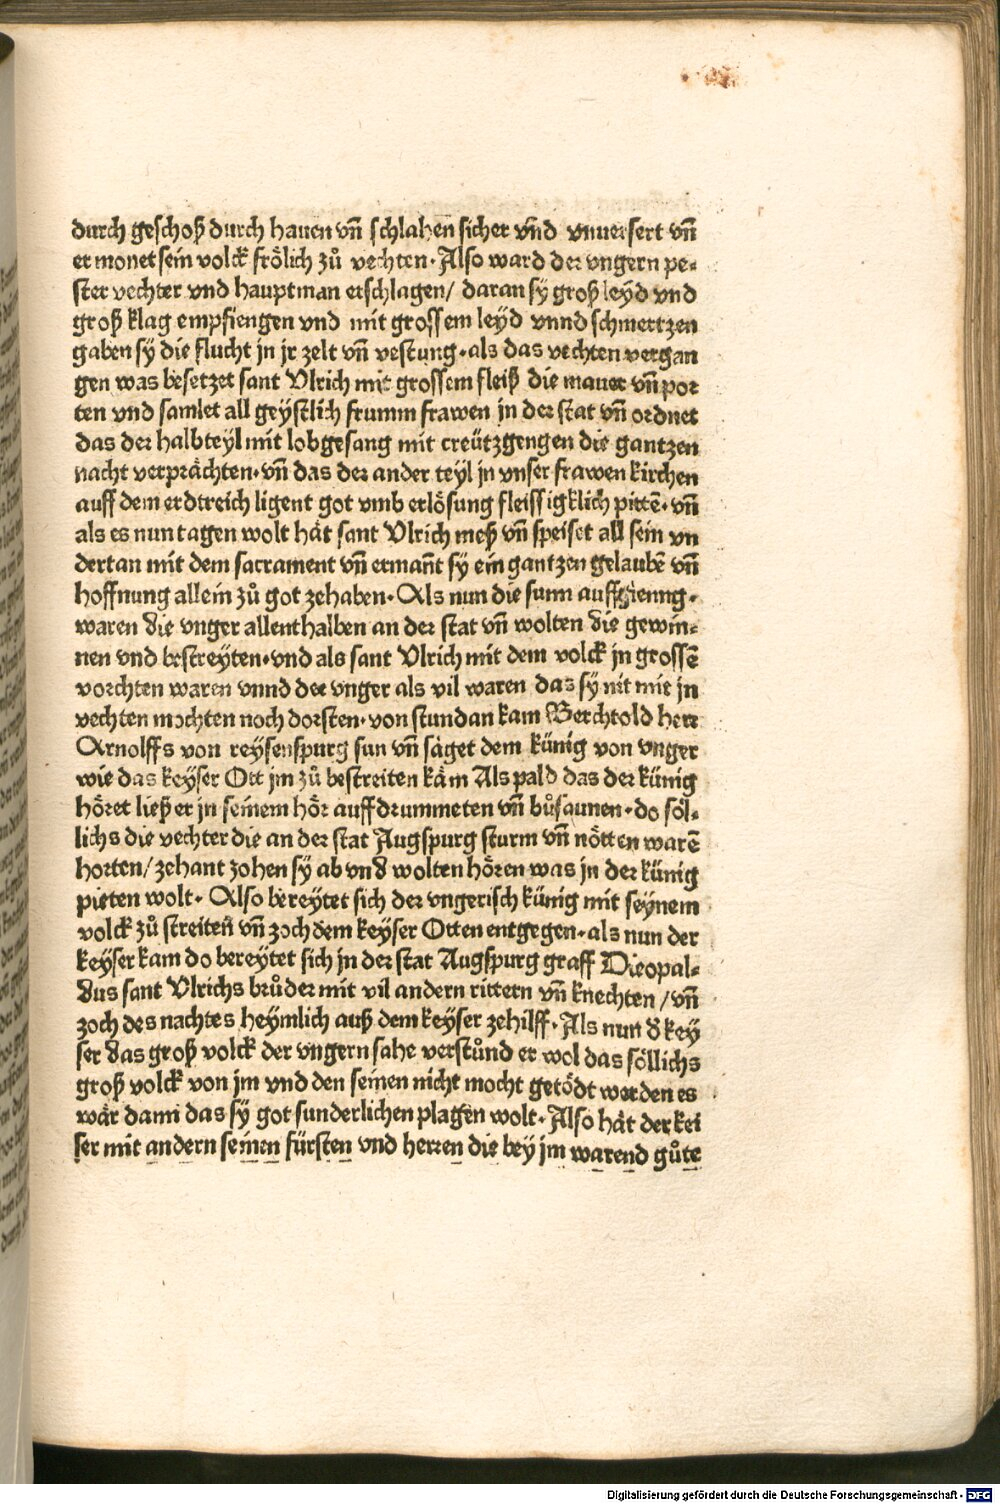 durch geschoß durch hauen vñ schlahen sicher vñd vnuersert vñ
er monet sein volck frölich zů vechten. Also ward der vngern pe-
ster vechter vnd hauptman erschlagen/ daran sy groß leyd vnd
groß klag empfiengen vnd mit grossem leyd vnnd schmertzen
gaben sy die flucht jn jr zelt vñ vestung. als das vechten vergan
gen was besetzet sant Vlrich mit grossem fleiß die maur vñ por
ten vnd samlet all geystlich frumm frawen jn der stat vñ ordnet
das der halbteyl mit lobgesang mit creützgengen die gantzen
nacht verprächten. vñ das der ander teyl jn vnser frawen kirchen
auff dem erdtreich ligent got vmb erlösung fleissigklich pittē. vñ
als es nun tagen wolt hät sant Vlrich meß vñ speiset all sein vn
dertan mit dem sacrament vñ ermañt sy ein gantzen gelaubē vñ
hoffnung allein zů got zehaben. Als nun die sunn auffgienng.
waren die vnger allenthalben an der stat vñ wolten die gewin-
nen vnd bestreyten. vnd als sant Vlrich mit dem volck jn grossē
vorchten waren vnnd der vnger als vil waren das sy nit mit jn
vechten mochten noch dorsten. von stundan kam Berchtold herr
Arnolffs von reysenspurg sun vñ säget dem künig von vnger
wie das keyser Ott jm zů bestreiten käm Als pald das der künig
höret ließ er jn seinem hör auffdrummeten vñ bůsaunen. do söl-
lichs die vechter die an der stat Augspurg sturm vñ nötten warē
horten/ zehant zohen sy ab vnd wolten hören was jn der künig
pieten wolt. Also bereytet sich der vngerisch künig mit seynem
volck zů streiteñ vñ zoch dem keyser Otten entgegen. als nun der
keyser kam do bereytet sich jn der stat Augspurg graff Dieopal-
dus sant Vlrichs brůder mit vil andern rittern vñ knechten /vñ
zoch des nachtes heymlich auß dem keyser zehilff. Als nun d key
ser das groß volck der vngern sahe verstůnd er wol das söllichs
groß volck von jm vnd den seinen nicht mocht getödt werden es
wär dann das sy got sunderlichen plagen wolt. Also hät der kei
ser mit andern seinen fürsten vnd herren die bey jm warend gůte
Digitalisierung gefördert durch die Deutsche Forschungsgemeinschaft - DFG